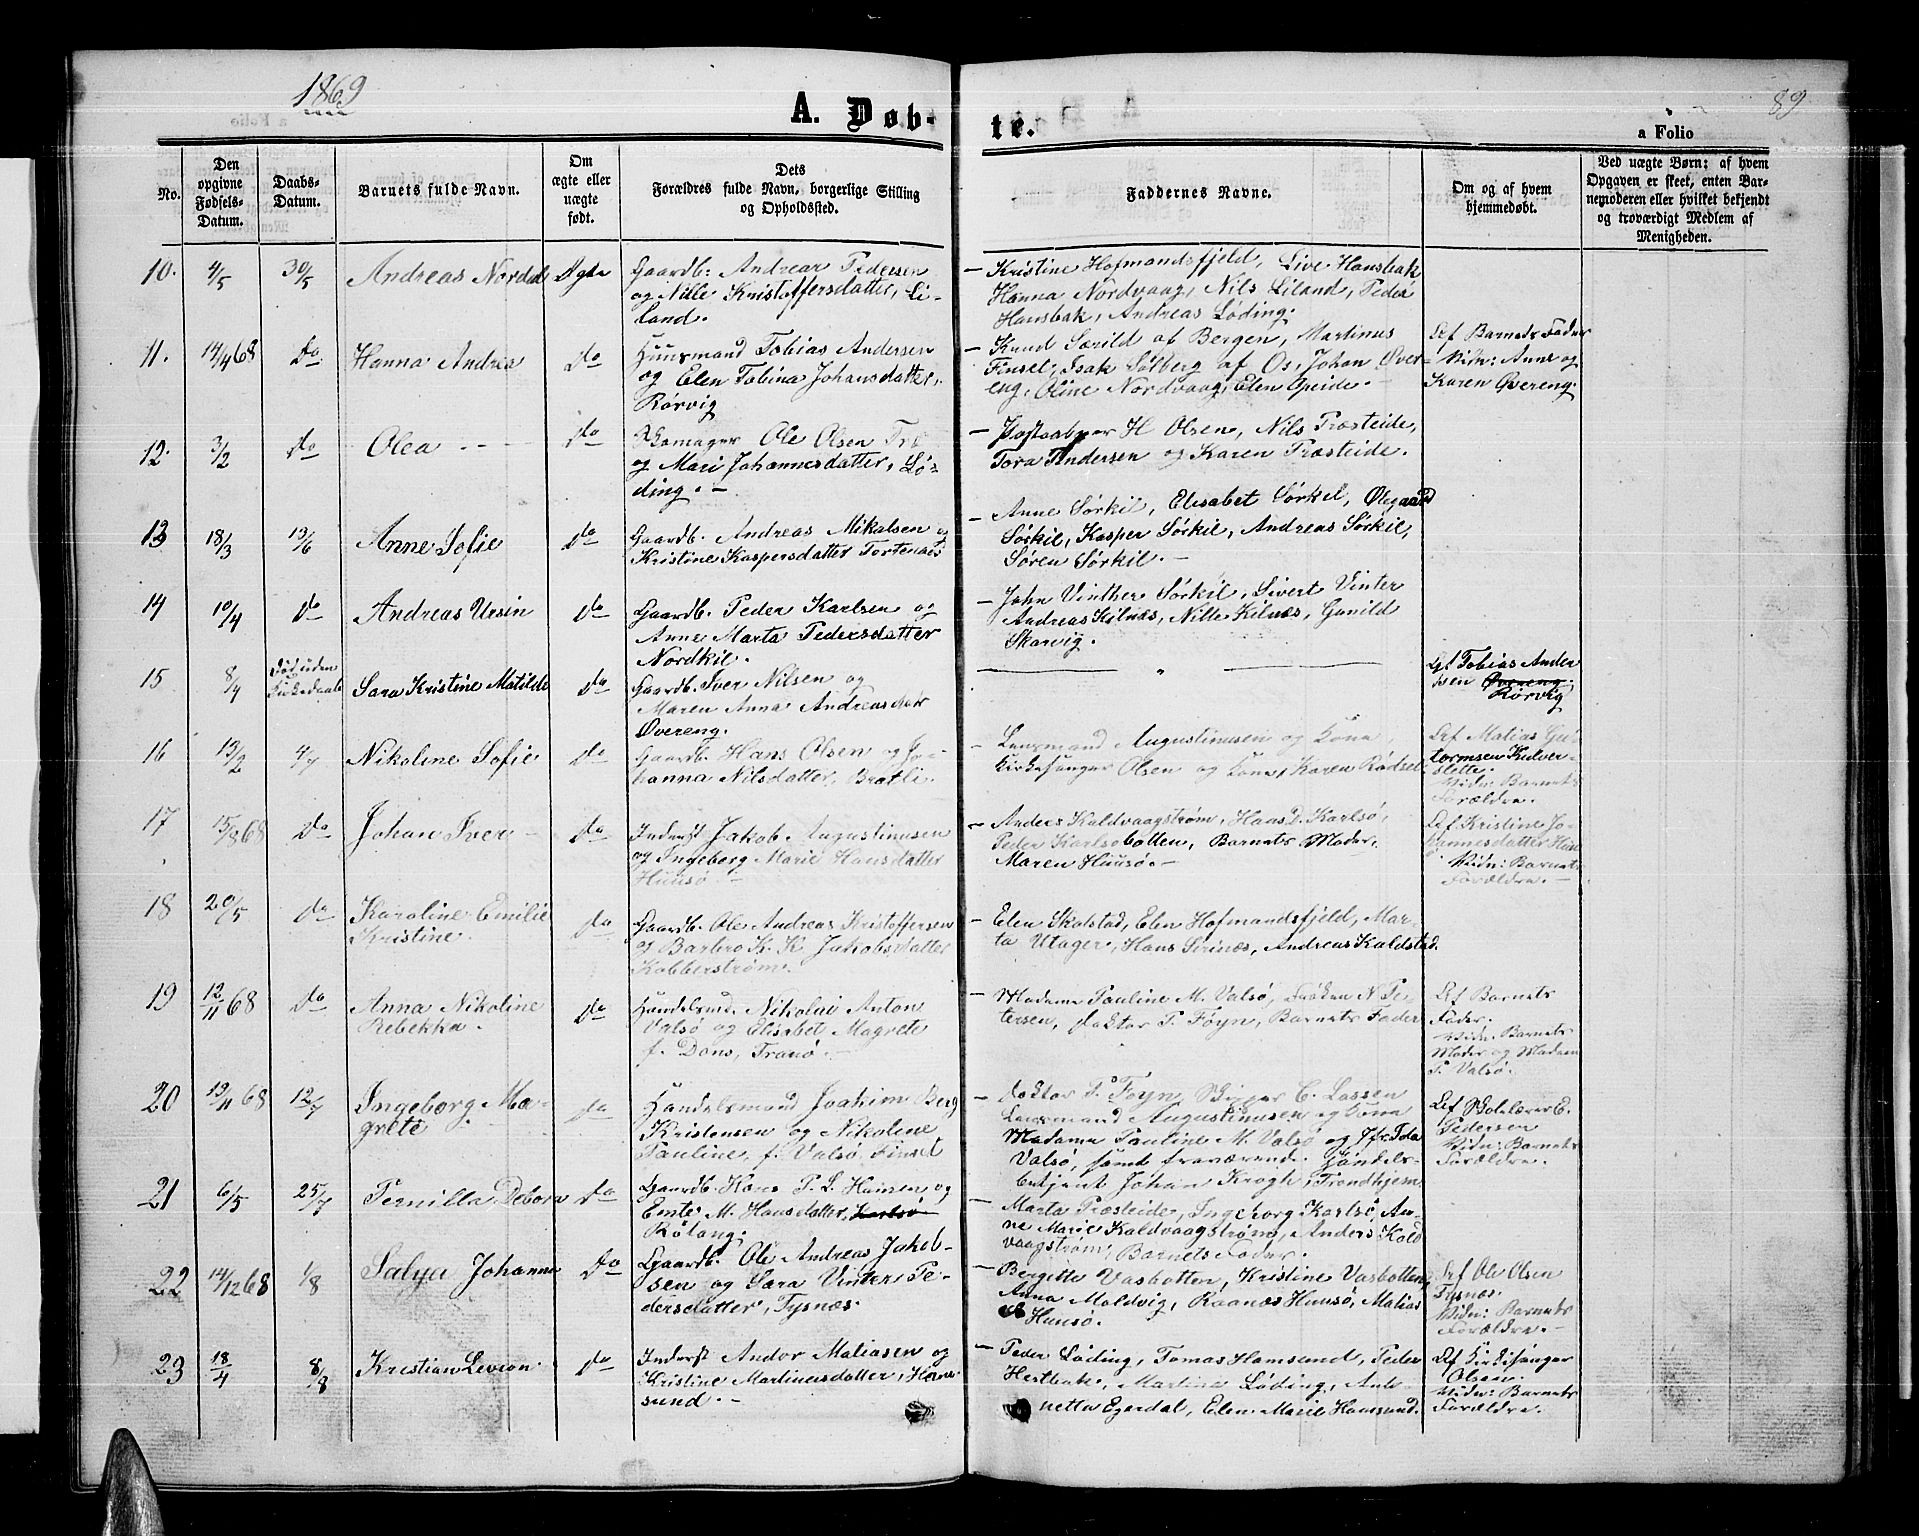 1869
89
A. Døb-
te.
a Folio
No.
Den
opgivne
Fødsels-
Datum.
Daabs-
Datum.
Barnets fulde Navn.
Om
ægte eller
uægte
født.
Dets
Forældres fulde Navn, borgerlige Stilling
og Opholdssted.
Faddernes Navne.
Om og af hvem
hjemmedøbt.
Ved uægte Børn: af hvem
Opgaven er skeet, enten Bar-
nemoderen eller hvilket bekjendt
og troværdigt Medlem af
Menigheden.
10. 4/5 30/5 Andreas Nordal Ægte
Gaardb: Andreas Pedersen
og Nille Kristoffersdatter, Li-
land.
– Kristine Hofmandsfjeld, Live Hansbak
Hanna Nordvaag, Nils Liland, Peder
Hansbak, Andreas Løding.
11. 14/4 68 Do Hanna Andrea Do
Huusmand Tobias Andersen
og Elen Tobina Johansdatter,
Rørvig
– Knud Særild af Bergen, Martinus
Finset, Isak Solberg af Os, Johan Øver-
eng, Oline Nordvaag, Elen Speide. –
Def Barnets Fader
Vidn: Anne og
Karen Øvereng.
12. 3/2 Do Olea – – – Do
Skomager Ole Olsen Træ
og Mari Johannesdatter, Lø-
ding. –
– Postaabner H Olsen, Nils Præsteide,
Tora Andersen og Karen Præsteide.
13 18/3 13/6 Anne Sofie Do
Gaardb. Andreas Mikalsen og
Kristine Kaspersdatter Tortenæs
– Anne Sørkil, Elisabet Sørkil, Ølegaard
Sørkil, Kasper Sørkil, Andreas Sørkil,
Søren Sørkil. –
14 10/4 Do Andreas Ursin Do
Gaardb. Peder Karlsen og
Anne Marta Pedersdatter
Nordkil.
– John Vinther Sørkil, Sivert Vinter
Andreas Kilnæs, Nille Kilnæs, Gunild
Skarvig.
15 8/4 Død uden
Kirkedaab Sara Kristine Matilde Do
Gaardb. Iver Nilsen og
Maren Anna Andreasdatr
Øvereng.
– „ –
Af Tobias Ander
sen Øvereng.
Rørvig
16 13/2 4/7 Nikoline Sofie Do
Gaardb. Hans Olsen og Jo-
hanna Nilsdatter, Bratli
– Lensmand Augustinusen og Kona
Kirkesanger Olsen og Kona, Karen Rødset
Def Matias Gu-
tormsen Kidver-
slette.
Vidn: Barnets
Forældre.
17 15/8 68 Do Johan Iver – Do
Inderst Jakob Augustinusen
og Ingeborg Marie Hansdatter
Huusø –
– Anders Kaldvaagstrøm, Hans D. Karlsø,
Peder Karlsøbotten, Barnets Moder,
Maren Huusø. –
Def Kristine Jo-
hannesdatter Huus
ø Vidn: Barnets
Forældre. –
18 20/5 Do Karoline Emilie
Kristine. Do
Gaardb. Ole Andreas Kristoffersen
og Barbro K. K. Jakobsdatter
Kobberstrøm.
– Elen Skalstad, Elen Hofmandsfjeld, Mar-
ta Utager, Hans Sirinæs, Andreas Kaldstad.
19 12/11 68 Do Anna Nikoline
Rebekka. Do
Handelsmd. Nikolai Anton
Valsø og Elisabet Magrete
f. Dons, Tranø. –
– Madame Pauline M. Valsø, Frøken N. Pe-
tersen, Doktor P. Føyn, Barnets Fader
Def Barnets
Fader.
Vidn. Barnets
Moder og Madam
P. Valsø.
20 19/11 68 12/7 Ingeborg Ma-
grete Do
Handelsmand Joakim Berg
Kristensen og Nikoline
Pauline f. Valsø, Finset
– Doktor P. Føyn, C. Lassen
Lensmand Augustinusen og Kona
Madame Pauline M. Valsø og Jfr. Ida
Valsø, samt fraværende: Handels-
betjent Johan Krogh, Trondhjem.
Def Skolelærer C.
Pedersen
Vidn: Barnets
Forældre.
21 6/5 25/7 Pernilla Debora Do
Gaardb. Hans P. L. Hansen og
Emte M. Hansdatter, Karlsø
Rølang.
– Marta Præsteide, Ingeborg Karlsø, An-
ne Marie Kaldvaagstrøm, Anders Kald
vaagstrøm, Barnets Fader.
22 14/12 68 1/8 Salya Johanna Do
Gaardb. Ole Andreas Jakob-
sen og Sara Vinter Pe-
dersdatter, Tysnæs.
– Bergitte Vasbotten, Kristine Vasbotten,
Anna Maldvig, Raanæs Huusø, Matias
Huusø.
Def Ole Olsen
Tysnæs.
Vidn: Barnets
Forældre. –
23 18/4 8/8 Kristian Levion. Do
Inderst Andor Matiasen og
Kristine Martinusdatter, Ham-
sund. –
– Peder Løding, Tomas Hamsund, Peder
Hestbak, Martine Løding, Ant-
netta Egerdal, Elen Marie Hamsund.
Def Kirkesanger
Olsen.
Vidn: Barnets
Forældre.